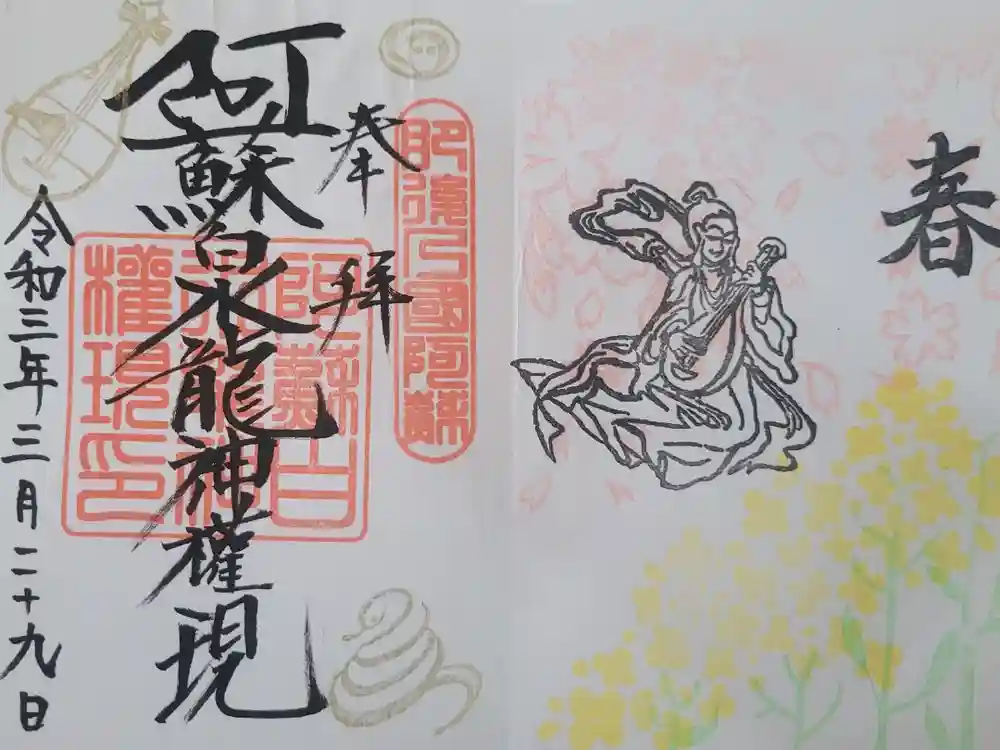 春
肥後乃國阿蘇
奉拝
阿蘇白水龍神權現
阿蘇白
水龍神
權現印
令和三年三月二十九日